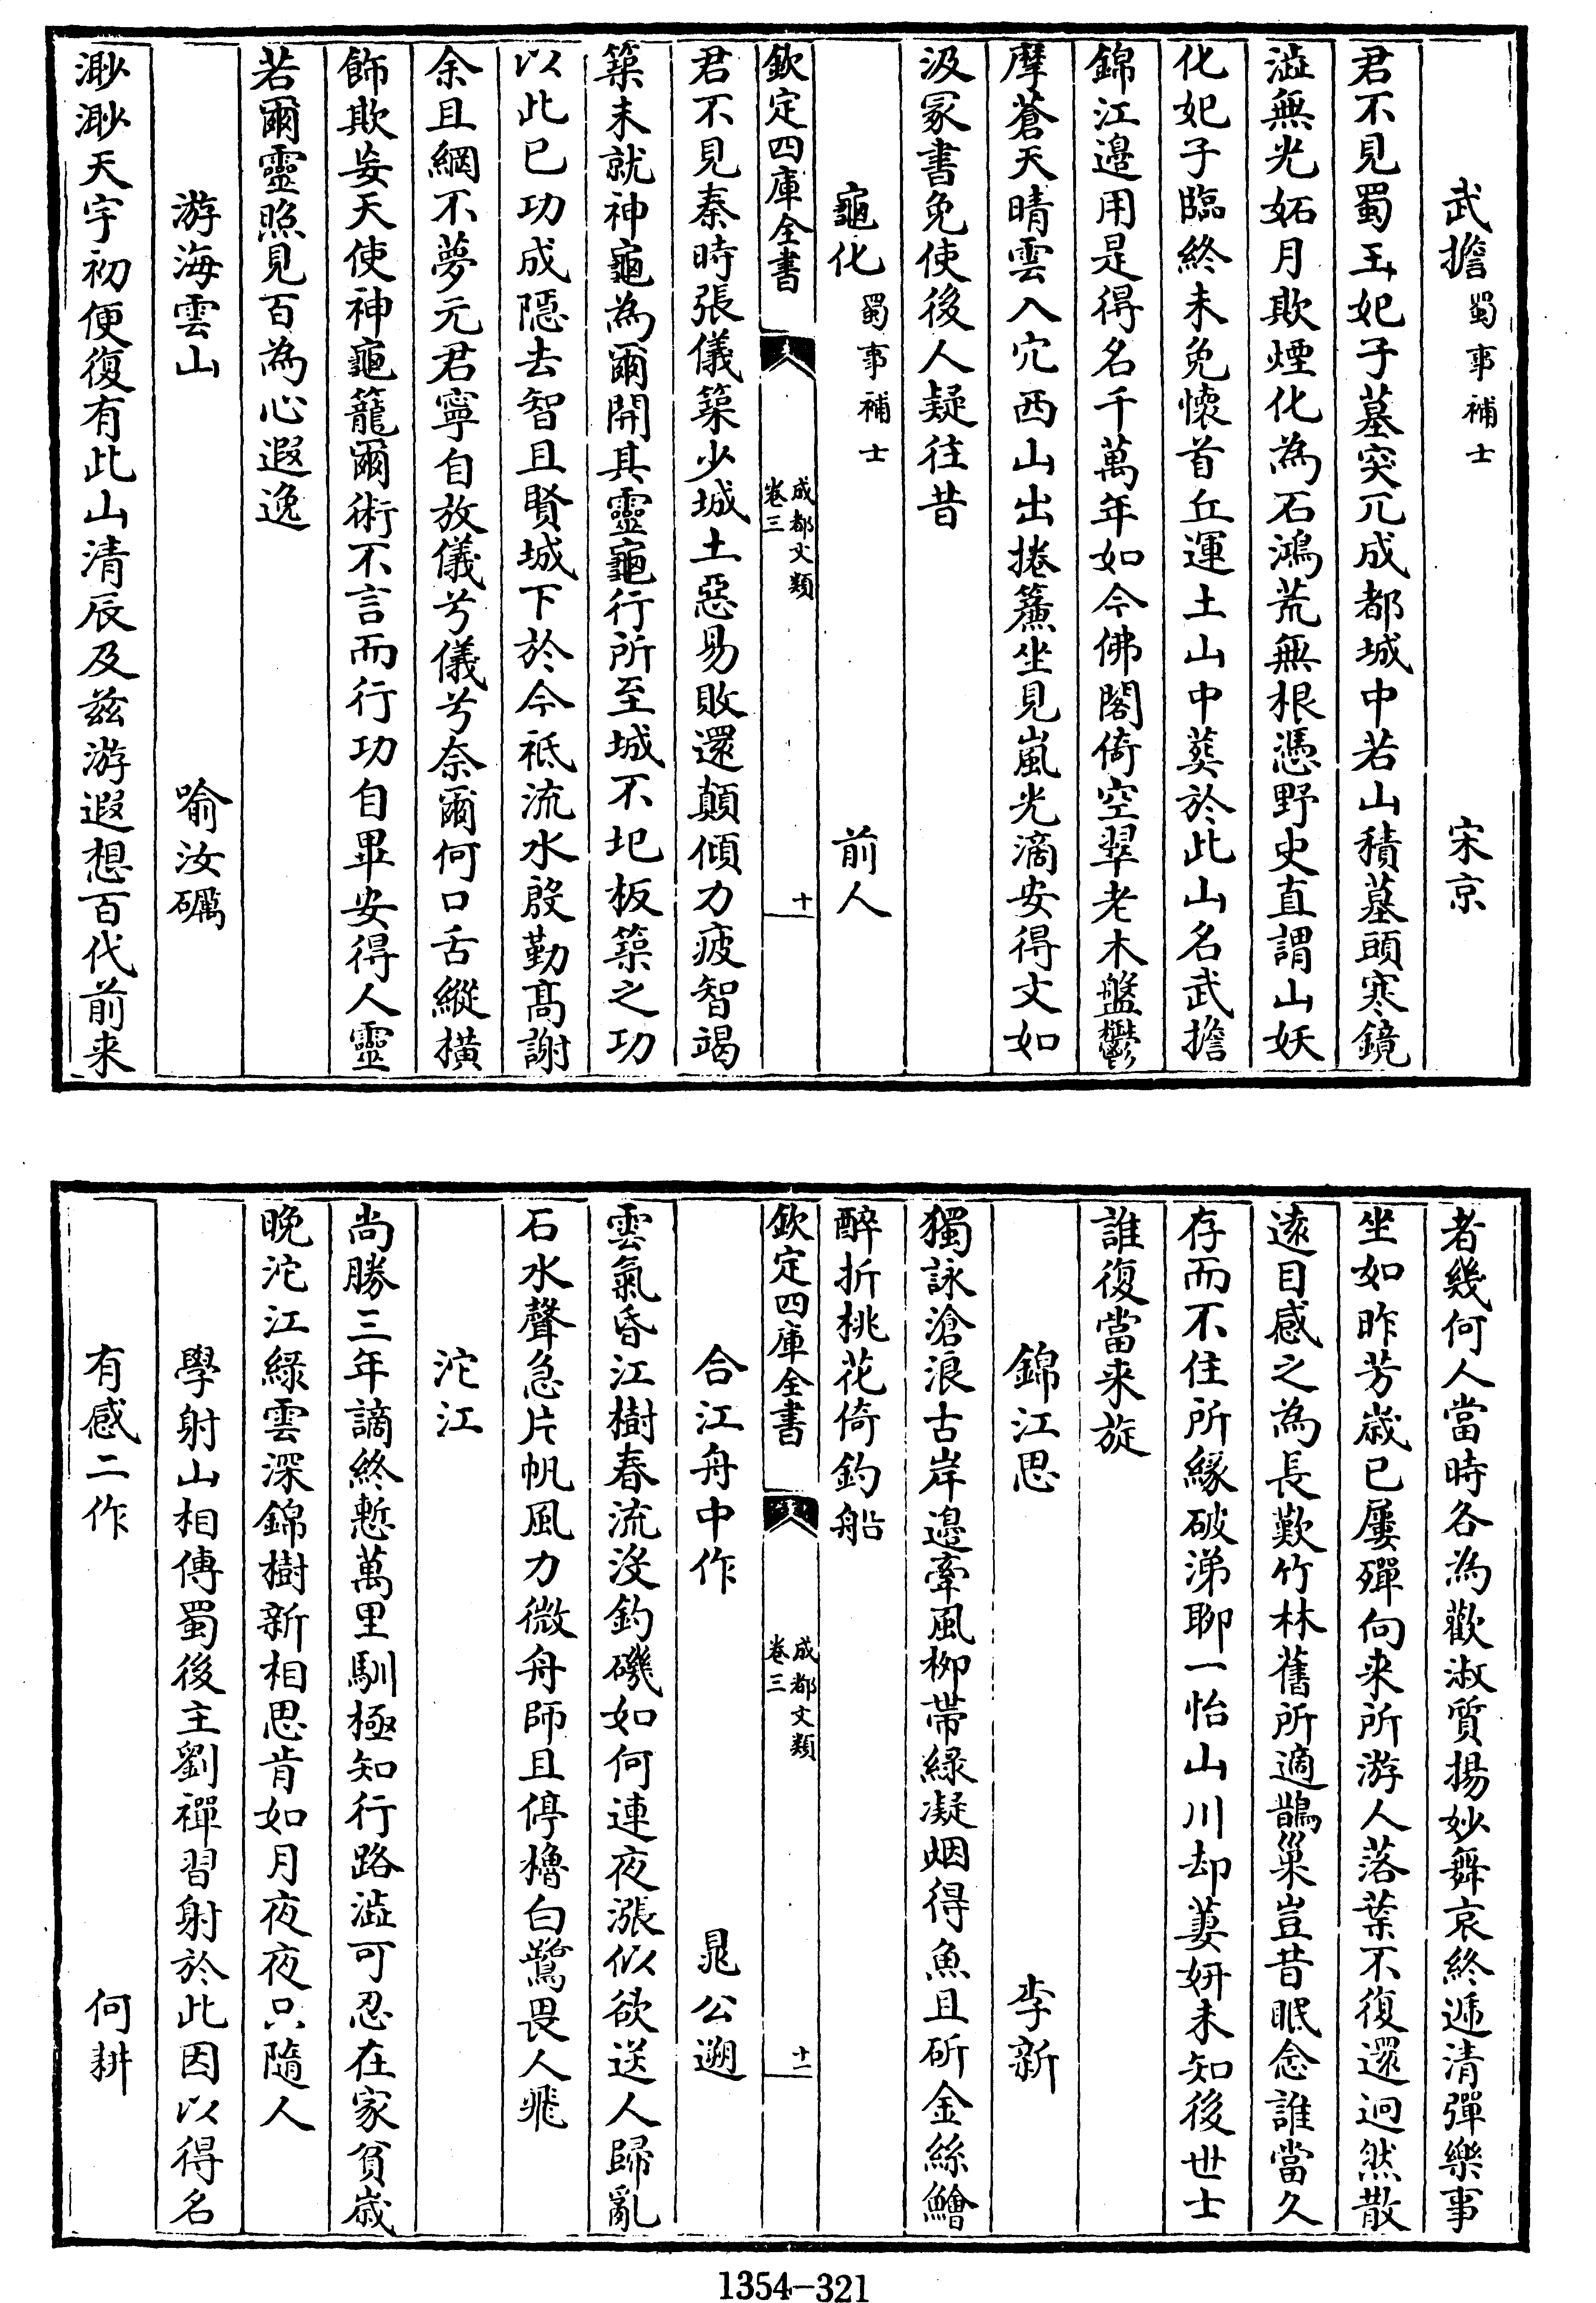 武擔蜀事補士 宋京
君不見蜀王妃子墓突兀成都城中若山積墓頭寒鏡
澁無光妬月欺煙化為石鴻荒無根憑野史直謂山妖
化妃子臨終未免懷首丘運土山中葬於此山名武擔
錦江邉用是得名千萬年如今佛閣倚空翠老木盤鬱
摩蒼天晴雲入穴西山出捲簾坐見嵐光滴安得文如
汲冡書免使後人疑往昔
龜化蜀事補士 前人
欽定四庫全書 成都文類卷三 十
君不見秦時張儀築少城土惡易敗還顛傾力疲智竭
築未就神龜為爾開其靈龜行所至城不圮板築之功
以此已功成隱去智且賢城下於今祗流水殷勤髙謝
余且網不夢元君寧自放儀兮儀兮奈爾何口舌縱横
飾欺妄天使神龜籠爾術不言而行功自畢安得人靈
若爾靈照見百為心遐逸
游海雲山 喻汝礪
渺渺天宇初便復有此山清辰及兹游遐想百代前来
者幾何人當時各為歡淑質揚妙舞哀終遞清彈樂事
坐如昨芳歳已屢殫向来所游人落葉不復還迥然散
逺目感之為長歎竹林舊所適鵲巢豈昔眠念誰當久
存而不住所緣破涕聊一怡山川却萋妍未知後世士
誰復當来旋
錦江思 李新
獨詠滄浪古岸邉牽風栁帶緑凝烟得魚且斫金絲鱠
醉折桃花倚釣船
欽定四庫全書 成都文類卷三 十一
合江舟中作 晁公遡
雲氣昏江樹春流没釣磯如何連夜漲似欲送人歸亂
石水聲急片帆風力微舟師且停櫓白鷺畏人飛
沱江
尚勝三年謫終慙萬里馴極知行路澁可忍在家貧歳
晚沱江緑雲深錦樹新相思肯如月夜夜只隨人
學射山相傳蜀後主劉禪習射於此因以得名
有感二作 何耕
1354-321